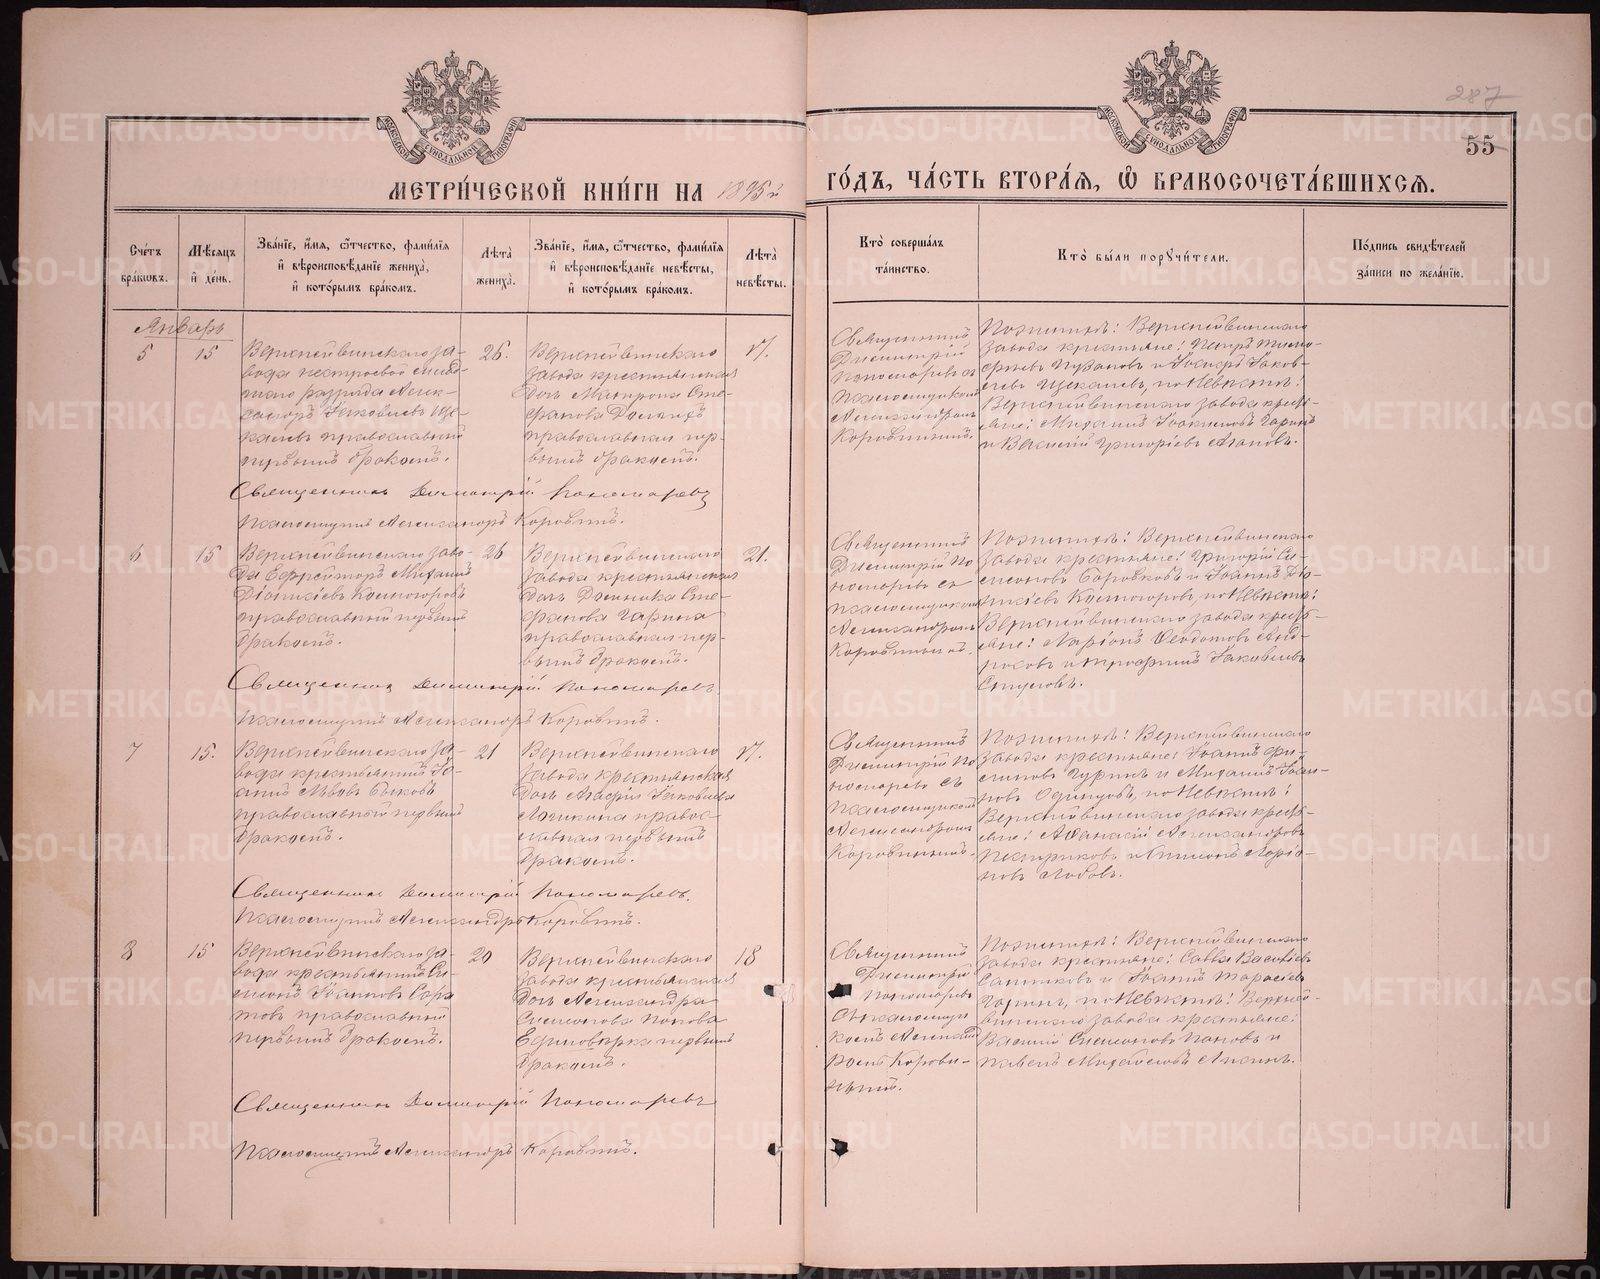 287
55
МЕТРИ́ЧЕСКОЙ КНИ́ГИ НА 1895 й
ГО́ДЪ, ЧА́СТЬ ВТОРА́Я, Ѿ БРАКОСОЧЕТА́ВШИХСЯ.
Сче́тъ бра́ковъ.
Мѣ́сяцъ и де́нь.
Зва́нїе, и́мя, ѻ҆́тчество, фами́лїя
и҆ вѣроисповѣ́данїе жениха̀,
и҆ кото́рымъ бра́комъ.
Лѣ́та жениха̀.
Зва́нїе, и́мя, ѻ҆́тчество, фами́лїя
и҆ вѣроисповѣ́данїе невѣ́сты,
и҆ кото́рымъ бра́комъ.
Лѣ́та невѣ́сты.
Кто̀ соверша́лъ
та́инство.
Кто̀ бы́ли поручи́тели.
По́дпись свидѣ́телей
за́писи по жела́нїю.
Январь
5
15
Верхнейвинскаго за-
вода нестроевой
разряда Алек-
сандръ Іаковлевъ Ще-
калевъ православный
первымъ бракомъ.
26.
Верхнейвинскаго
завода крестьянская
дочь Матрона Сте-
фанова
православная пер-
вымъ бракомъ.
17.
Священникъ
Димитрій
Пономаревъ съ
псаломщикомъ
Александромъ
Коровинымъ
Поженихѣ: Верхнейвинскаго
завода крестьяне: Петръ Тимо-
феевъ Пузановъ и Іосифъ Іаков-
левъ Щекалевъ, по невѣстѣ:
Верхнейвинскаго завода кресть-
яне: Михаилъ Іоакимовъ Гаринъ
и Василій Григоріевъ Агаповъ.
Священникъ Димитрій Пономаревъ
Псаломщикъ Александръ Коровинъ.
6
15
Верхнейвинскаго заво-
да Ефрейторъ Михаилъ
Діонисіевъ Космогоровъ
православный первымъ
бракомъ.
26
Верхнейвинскаго
завода крестьянская
дочь Домника Сте-
фанова Гарина
православная пер-
вымъ бракомъ.
21.
Священникъ
Димитрій По
номаревъ съ
псаломщикомъ
Александромъ
Коровинымъ.
Поженихѣ: Верхнейвинскаго
завода крестьяне: Григорій Си-
меоновъ Боровковъ и Іоаннъ Діо-
нисіевъ Космогоровъ, по невѣстѣ:
Верхнейвинскаго завода кресть-
яне: Ларіонъ Ѳеодотовъ Анд-
и Трофимъ Іаковлевъ
Священникъ Димитрій Пономаревъ.
Псаломщикъ Александръ Коровинъ.
7
15.
Верхнейвинскаго за-
вода крестьянинъ Іо-
аннъ Львовъ Быковъ
православный первымъ
бракомъ.
21
Верхнейвинскаго
завода крестьянская
дочь Агафія Іаковлева
Лягина правос-
лавная первымъ
бракомъ.
17.
Священникъ
Димитрій По
номаревъ съ
псаломщикомъ
Александромъ
Коровинымъ.
Поженихѣ: Верхнейвинскаго
завода крестьяне: Іоаннъ Фи-
липовъ Гуринъ и Михаилъ Іоан-
новъ Одинцовъ, по невѣстѣ:
Верхнейвинскаго завода кресть-
яне: Аѳанасій Александровъ
Пестриковъ и Ларіо-
новъ Лобовъ.
Священникъ Димитрій Пономаревъ.
Псаломщикъ Александръ Коровинъ.
8
15
Верхнейвинскаго за-
вода крестьянинъ Си-
меонъ Іоанновъ Сора
товъ православный
первымъ бракомъ.
20
Верхнейвинскаго
завода крестьянская
дочь Александра
Симеонова Попова
Единовѣрка первымъ
бракомъ.
18
Священникъ
Димитрій
Пономаревъ
съ псаломщи
комъ Александ
ромъ Корови-
нымъ.
Поженихѣ: Верхнейвинскаго
завода крестьяне: Савва Васильевъ
Санниковъ и Іоаннъ Тарасіевъ
Гаринъ, по невѣстѣ: Верхней-
винскаго завода крестьяне:
Василій Симеоновъ Поповъ и
Павелъ Михайловъ
Священникъ Димитрій Пономаревъ
Псаломщикъ Александръ Коровинъ.